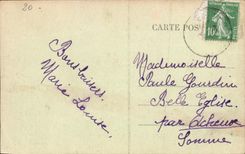 20 -
CARTE POS
10
Bons baisers
Marie Louise
Mademoiselle
Paule Gourdin
Belle Eglise
par Acheux
Somme